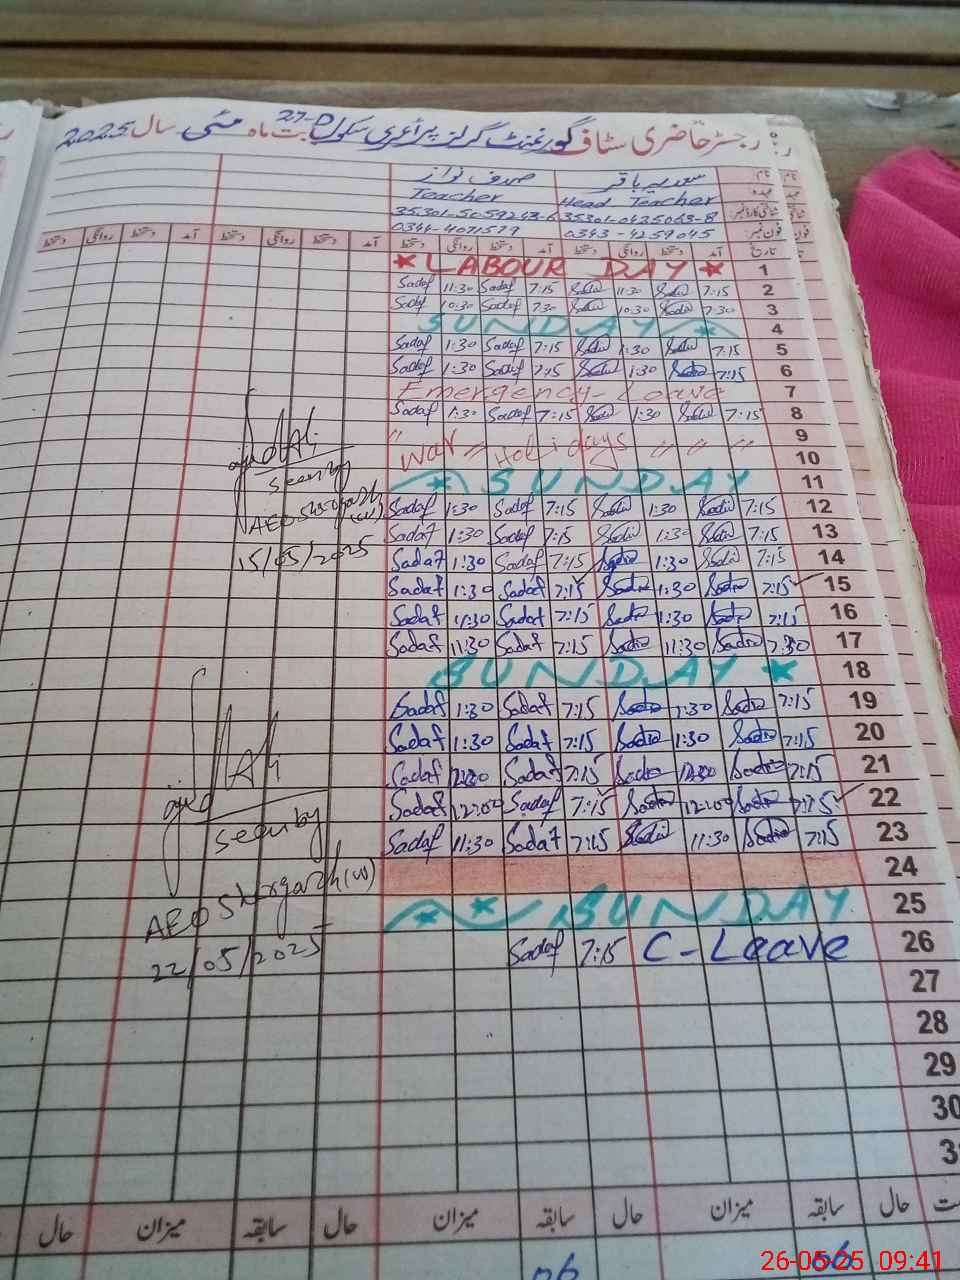 رجسٹر حاضری سٹاف گورنمنٹ گرلز پرائمری سکول 27-D بابت ماہ مئی سال 2025
نام سعدیہ باقر صدف نواز
عہدہ Head Teacher Teacher
شناختی کارڈ نمبر 35301-0435063-8
فون نمبر 0343-4259045 0344-4071579
تاریخ آمد دستخط روانگی دستخط آمد دستخط روانگی دستخط آمد دستخط روانگی دستخط آمد دستخط روانگی دستخط
★ LABOUR DAY ★ 1
Sadaf 11:30 Sadaf 7:15 11:30 7:15 2
Sadaf 10:30 Sadaf 7:30 10:30 7:30 3
SUNDAY 4
Sadaf 1:30 Sadaf 7:15 1:30 7:15 5
Sadaf 1:30 Sadaf 7:15 1:30 7:15 6
Emergency-Leave 7
Sadaf 1:30 Sadaf 7:15 1:30 7:15 8
9
War = Holidays 〃 〃 〃 10
SUNDAY 11
Sadaf 1:30 Sadaf 7:15 1:30 7:15 12
Sadaf 1:30 Sadaf 7:15 1:30 7:15 13
Sadaf 1:30 Sadaf 7:15 1:30 7:15 14
Sadaf 1:30 Sadaf 7:15 1:30 7:15 15
Sadaf 11:30 Sadaf 7:15 11:30 7:15 16
Sadaf 11:30 Sadaf 7:15 11:30 7:30 17
SUNDAY ★ 18
Sadaf 1:30 Sadaf 7:15 1:30 7:15 19
Sadaf 1:30 Sadaf 7:15 1:30 7:15 20
Sadaf Sadaf 7:15 7:15 21
Sadaf 12:00 Sadaf 7:15 12:00 7:15 22
Sadaf 11:30 Sadaf 7:15 11:30 7:15 23
24
★ ★ SUNDAY 25
Sadaf 7:15 C-Leave 26
27
28
29
30
3
seen by
AEO Shergarh (w)
15/05/2025
seen by
AEO Shergarh (w)
22/05/2025
حال سابقہ میزان حال سابقہ میزان حال سابقہ میزان حال
06 06
26-05-25 09:41